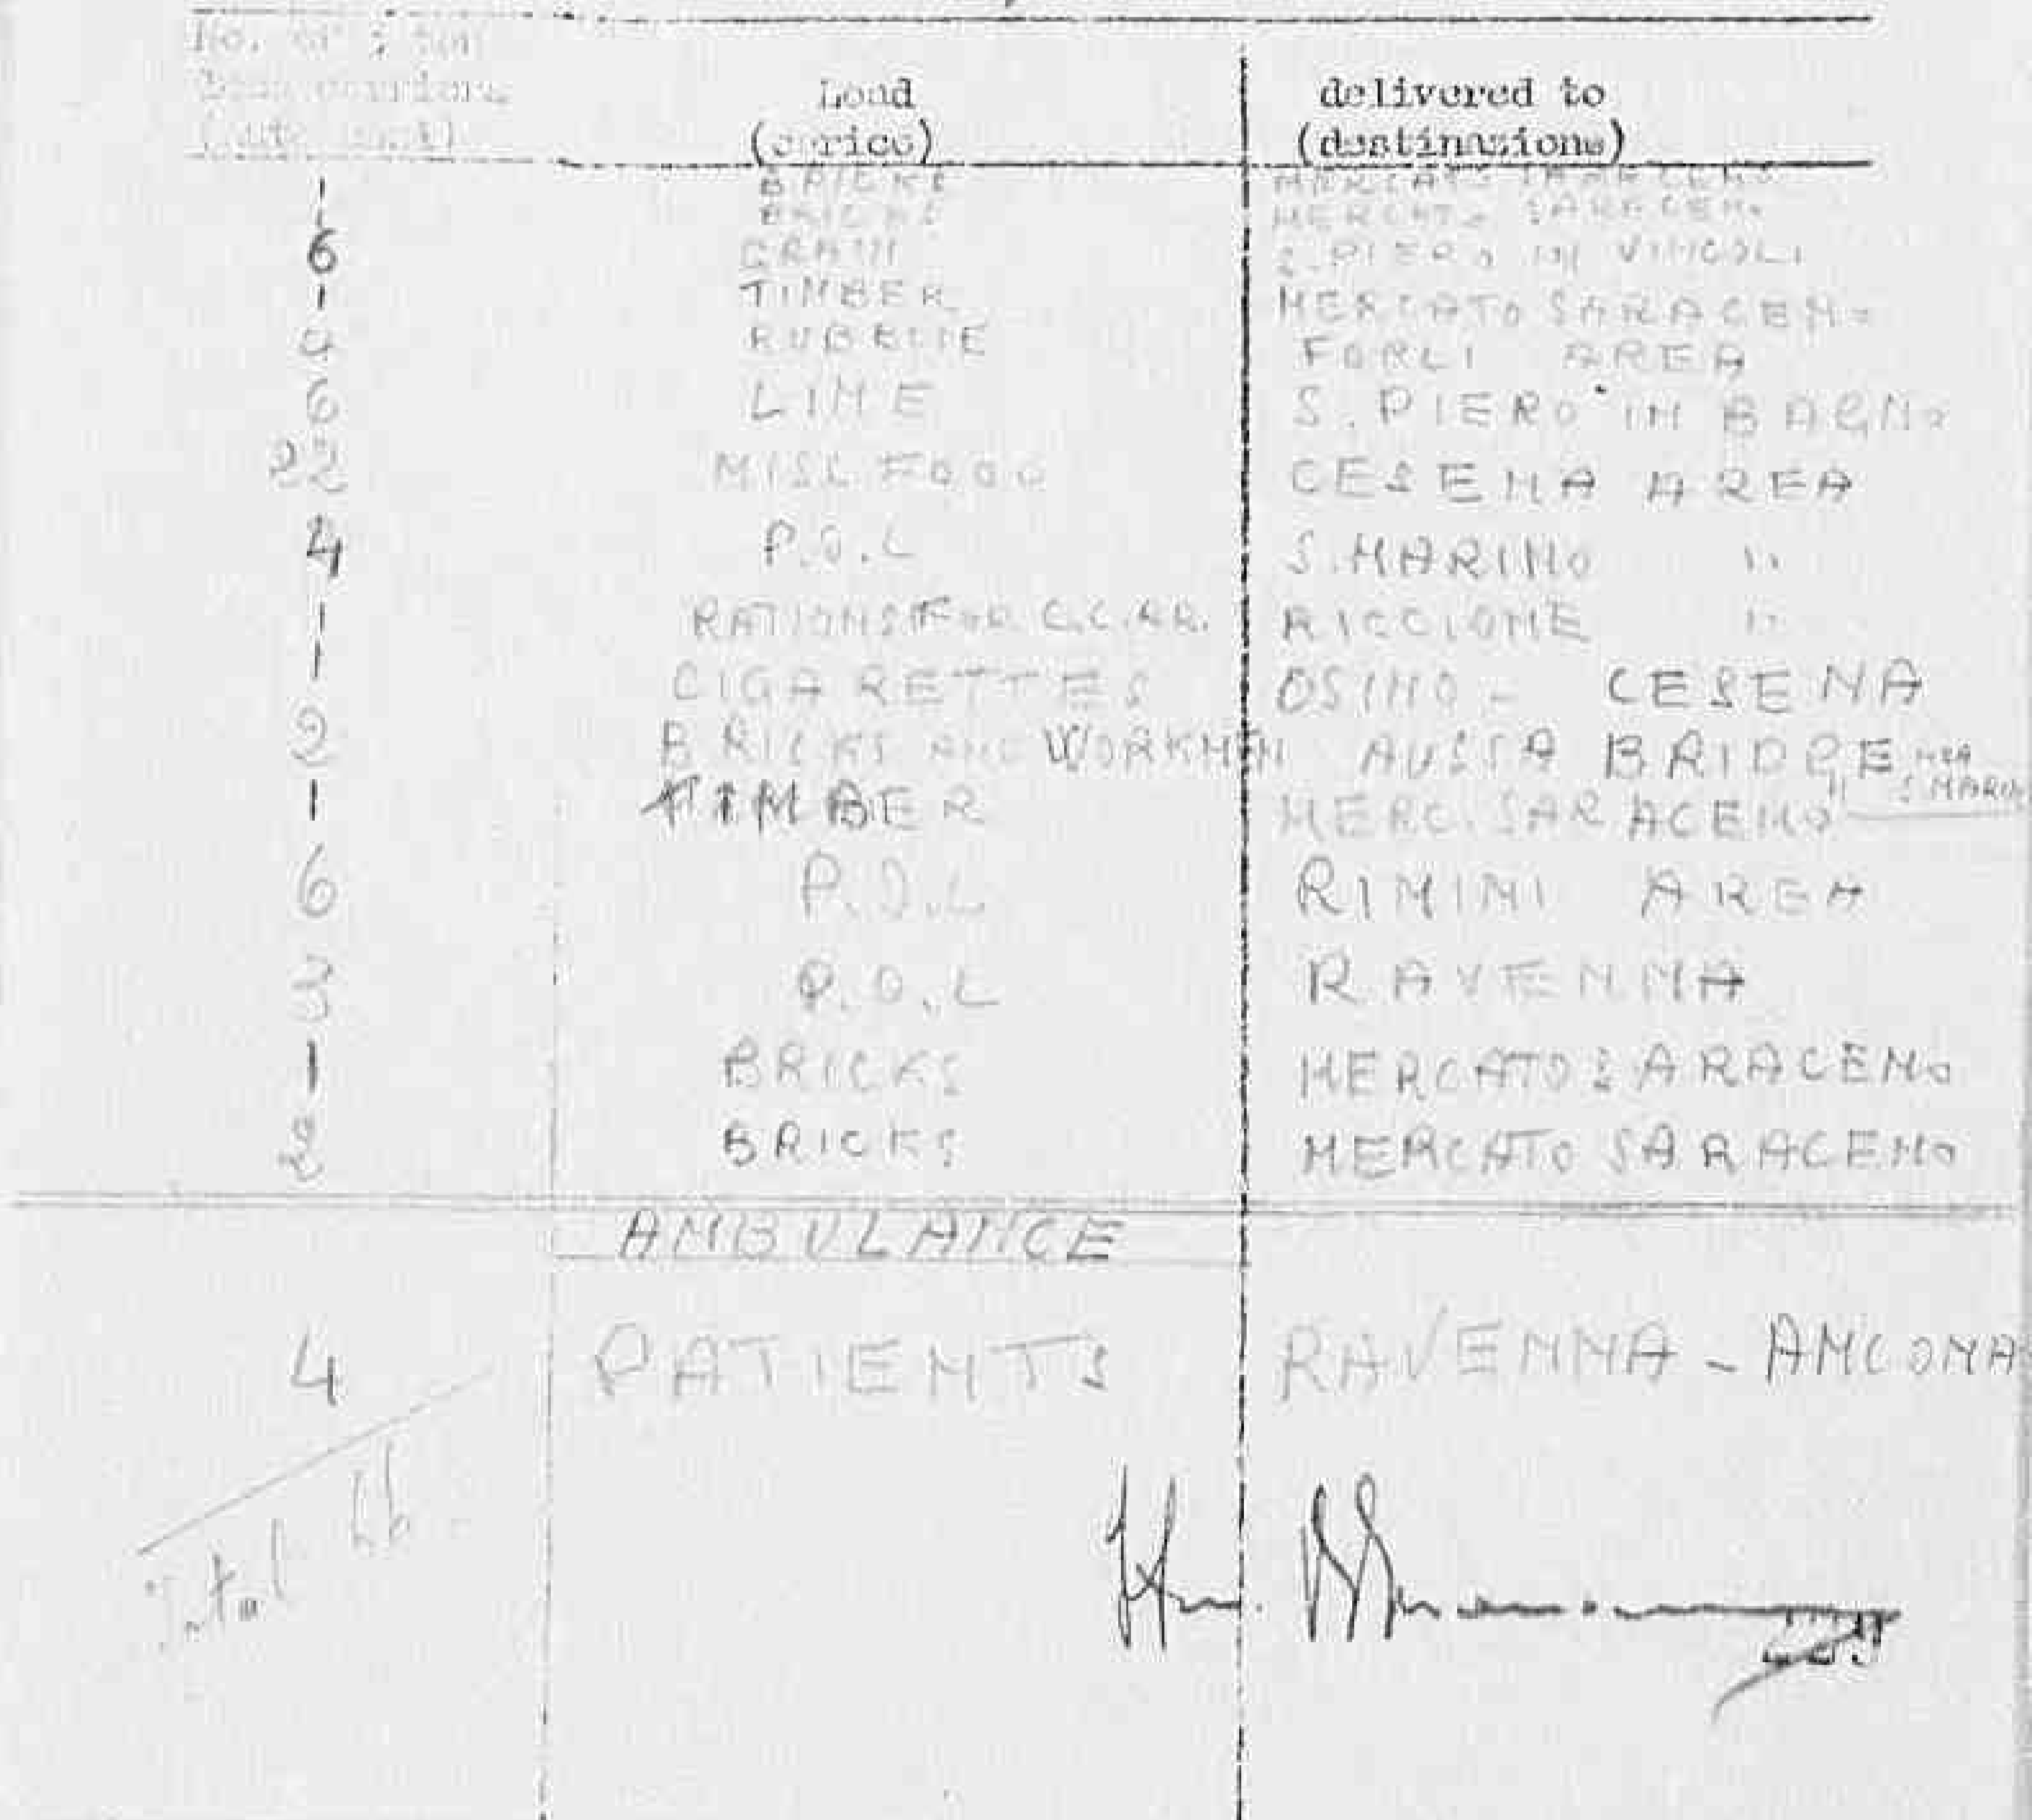 No. of 3 ton
Load delivered to
(carico) (destinazione)
1 BRICKS MERCATO SARACENO
1 BRICKS MERCATO SARACENO
6 GRAIN S. PIERO IN VINCOLI
1 TIMBER MERCATO SARACENO
9 RUBELIE FORLI AREA
6 LIME S. PIERO IN BAGNO
22 MISC FOOD CESENA AREA
4 P.O.L S. MARINO "
1 RATIONS FOR C.C.RR. RICCIONE "
1 CIGARETTES OSIMO - CESENA
2 BRICKS AND WORKMEN AUSSA BRIDGE
S MARINO
1 TIMBER MERC. SARACENO
6 P.O.L RIMINI AREA
3 P.O.L RAVENNA
1 BRICKS MERCATO SARACENO
2 BRICKS MERCATO SARACENO
AMBULANCE
4 PATIENTS RAVENNA - ANCONA
Total 66